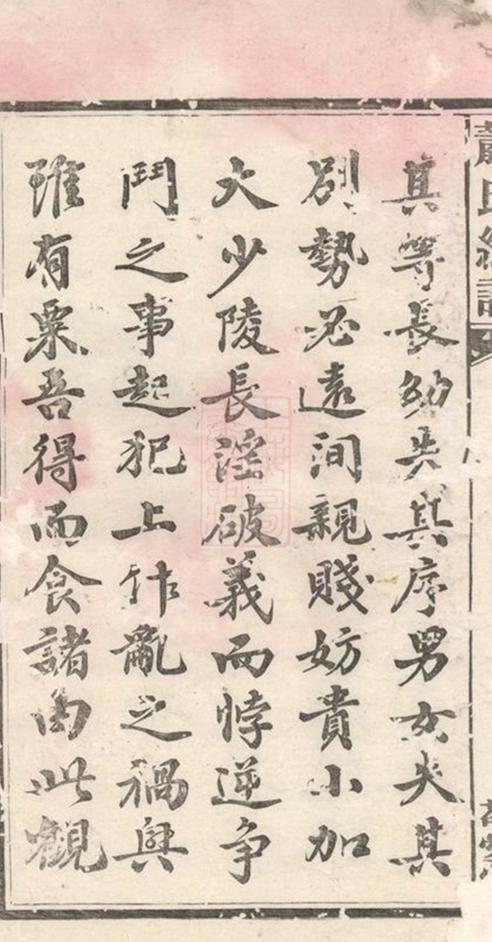 其等長幼失其序男女失其
別勢必遠間親賤妨貴小加
大少陵長淫破義而悖逆争
鬥之事起犯上作亂之禍興
雖有粟吾得而食諸由此觀